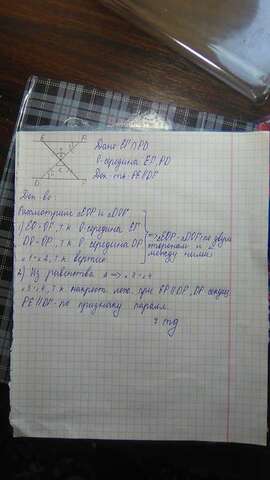 E P
O
D F
Дано: EF∩PD
O-середина EF, PD
Док-ть: PE∥DF
Док-во:
Рассмотрим △EOP и △DOF
1) EO=OF, т.к. O-середина EF
DO=OP, т.к. O середина DP
∠1=∠2, т.к. вертик.
=> △EOP=△DOF по двум
сторонам и ∠
между ними
2) Из равенства △ => ∠3=∠4
∠3=∠4, т.к. накрест леж. при EP∥DF, DP секущ.
PE∥DF-по признаку паралл.
ч.тд